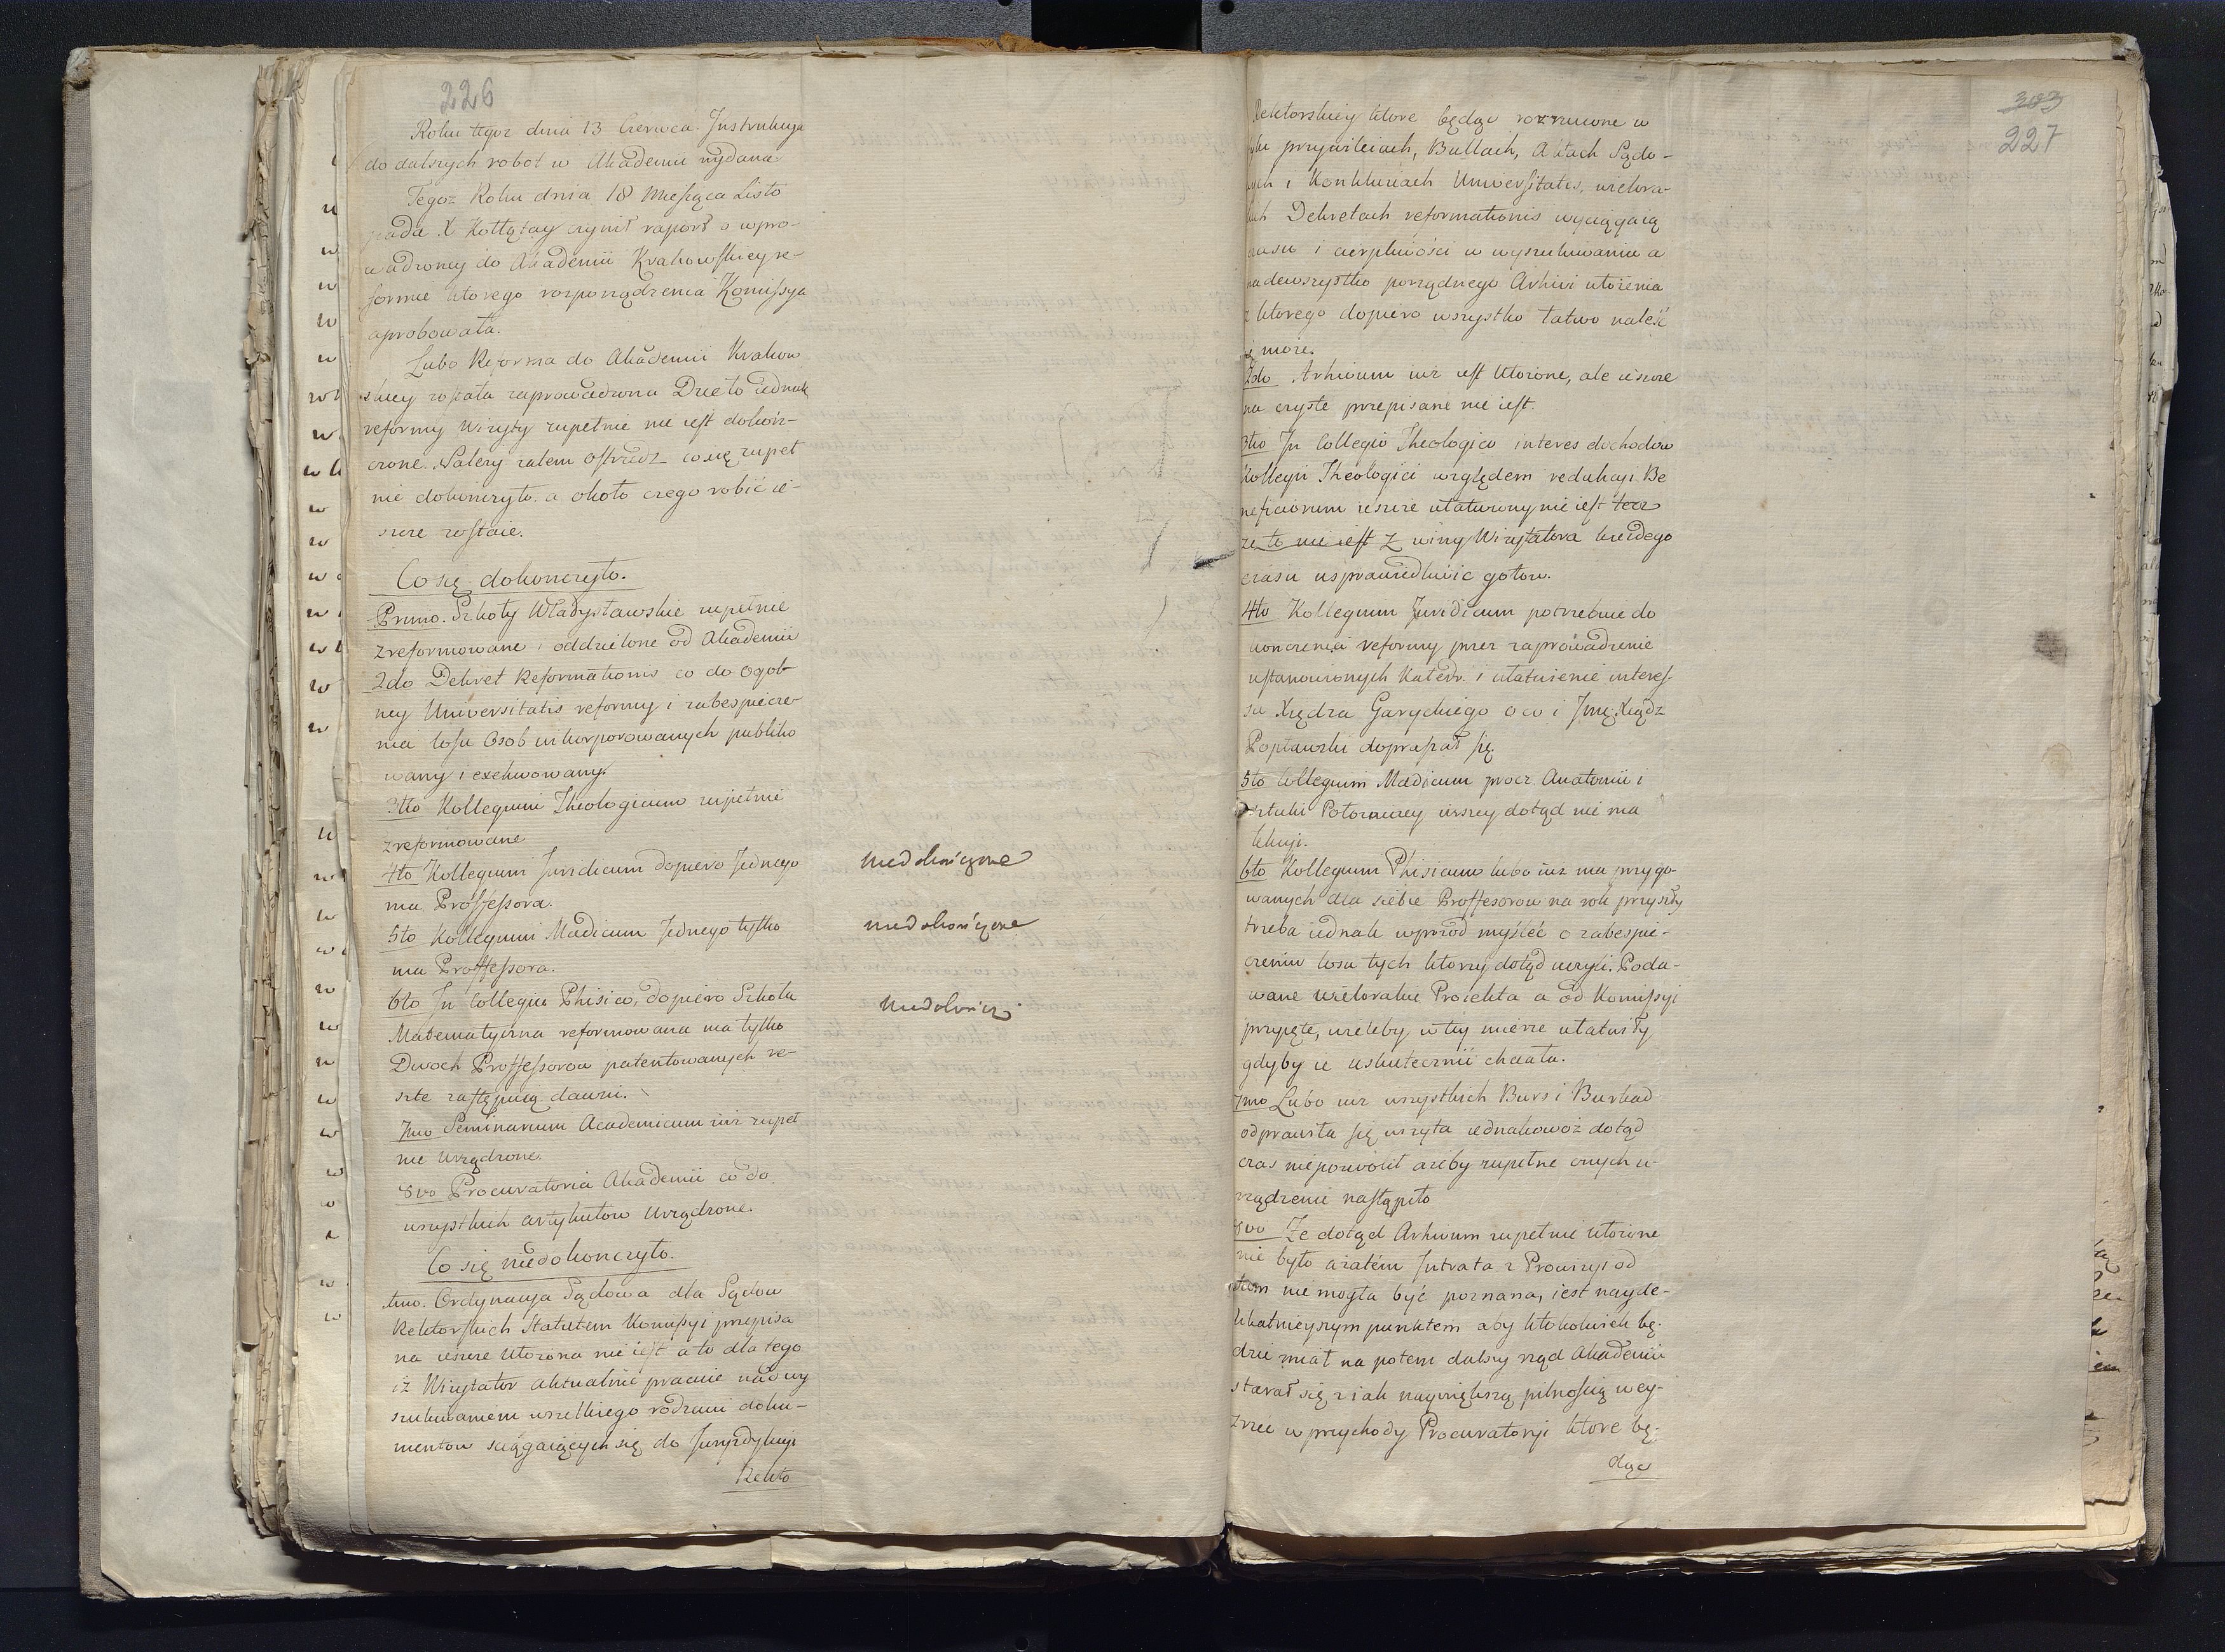 226
Roku tegoż dnia 13 Czerwca. Instrukcya
do dalszych robot w Akademii wydana
Tegoż Roku dnia 18 Miesiąca Listo
pada X Kołłątay czynił raport o wpro-
wadzoney do Akademii Krakowskiey re-
formie ktorego rozporządzenia Komissya
aprobowała.
Lubo Reforma do Akademii Krakow
skiey została zaprowadzona Dzieło iednak
reformy Wizyty zupełnie nie iest dokoń-
czone. Należy zatem ostrzedz co się zupeł
nie dokończyło a około czego robić ie-
szcze zostaie.
Co się dokonczyło.
Primo. Szkoły Władysławskie zupełnie
zreformowane i oddzielone od Akademii
2do Dekret Reformationis co do Ogol-
ney Universitatis reformy i zabespiecze-
nia losu Osob inkorporowanych publiko
wany i exekwowany.
3tio Kollegium Theologicum zupełnie
zreformowane
4to Kollegium Juridicum dopiero Jednego
ma Proffessora.
niedokończone
5to Kollegium Medicum Jednego tylko
ma Proffessora.
niedokończone
6to In Collegio Phisico, dopiero Szkoła
Matematyczna reformowana ma tylko
niedokończ
Dwoch Proffessorow patentowanych re-
szte zastępuią dawni.
7mo Seminarium Academicum iuż zupeł
nie Urządzone.
8vo Procuratoria Akademii co do
wszystkich artykułow Urządzone.
Co się niedokonczyło.
1mo. Ordynacya Sądowa dla Sądow
Rektorskich Statutem Komissyi przepisa
na ieszcze Ułożona nie iest a to dla tego
iż Wizytator aktualnie pracuie nad wy
szukiwaniem wszelkiego rodzaiu doku-
mentow sciągaiących się do Juryzdykcyi
Rekto
303
227
Rektorskiey ktore będąc rozrzucone w
tylu przywileiach, Bullach, Aktach Sądo-
wych i Konkluziach Universitatis, wielora-
kich Dekretach reformationis wyciągaią
czasu i cierpliwości w wyszukiwaniu a
nadewszystko porządnego Arhivi ułożenia
z ktorego dopiero wszystko łatwo naleść
ę może.
2do Arhivum iuż iest Ułożone, ale ieszcze
na czyste przepisane nie iest.
3tio In Collegio Theologico interes dochodow
Kollegii Theologici względem redukcyi Be
neficiorum ieszcze ułatwiony nie iest lecz
że to nie iest z winy Wizytatora każdego
czasu usprawiedliwić gotow.
4to Kollegium Juridicum potrzebuie do
konczenia reformy przez zaprowadzenie
ustanowionych Katedr. i ułatwienie interes-
su Xiędza Garyckiego o co i Jmę Xiądz
Popławski dopraszał się.
5to Collegium Medicum procz Anatomii i
Sztuki Położniczey inszey dotąd nie ma
lekcyi.
6to Kollegium Phisicum lubo iuż ma przygo-
wanych dla siebie Proffesorow na rok przyszły
trzeba iednak wprzod myśleć o zabespie-
czeniu losu tych ktorzy dotąd uczyli. Poda-
wane wielorakie Proiekta a od Komissyi
przyięte, wieleby w tey mierze ułatwiły
gdyby ie uskutecznić chciała.
7mo Lubo iuż wszystkich Burs i Burkad
odprawiła się wizyta iednakowoż dotąd
czas niepozwolił ażeby zupełne onych u-
rządzenie nastąpiło
8vo Że dotąd Arhivum zupełnie Ułożone
nie było azatém Intrata z Prowizyi od
nie mogła być poznana, iest nayde-
likatnieyszym punktem aby ktokolwiek bę-
dzie miał na potem dalszy rząd Akademii
starał się z iak naywiększą pilnością wey-
zrzec w przychody Procuratoryi ktore bę-
dąc